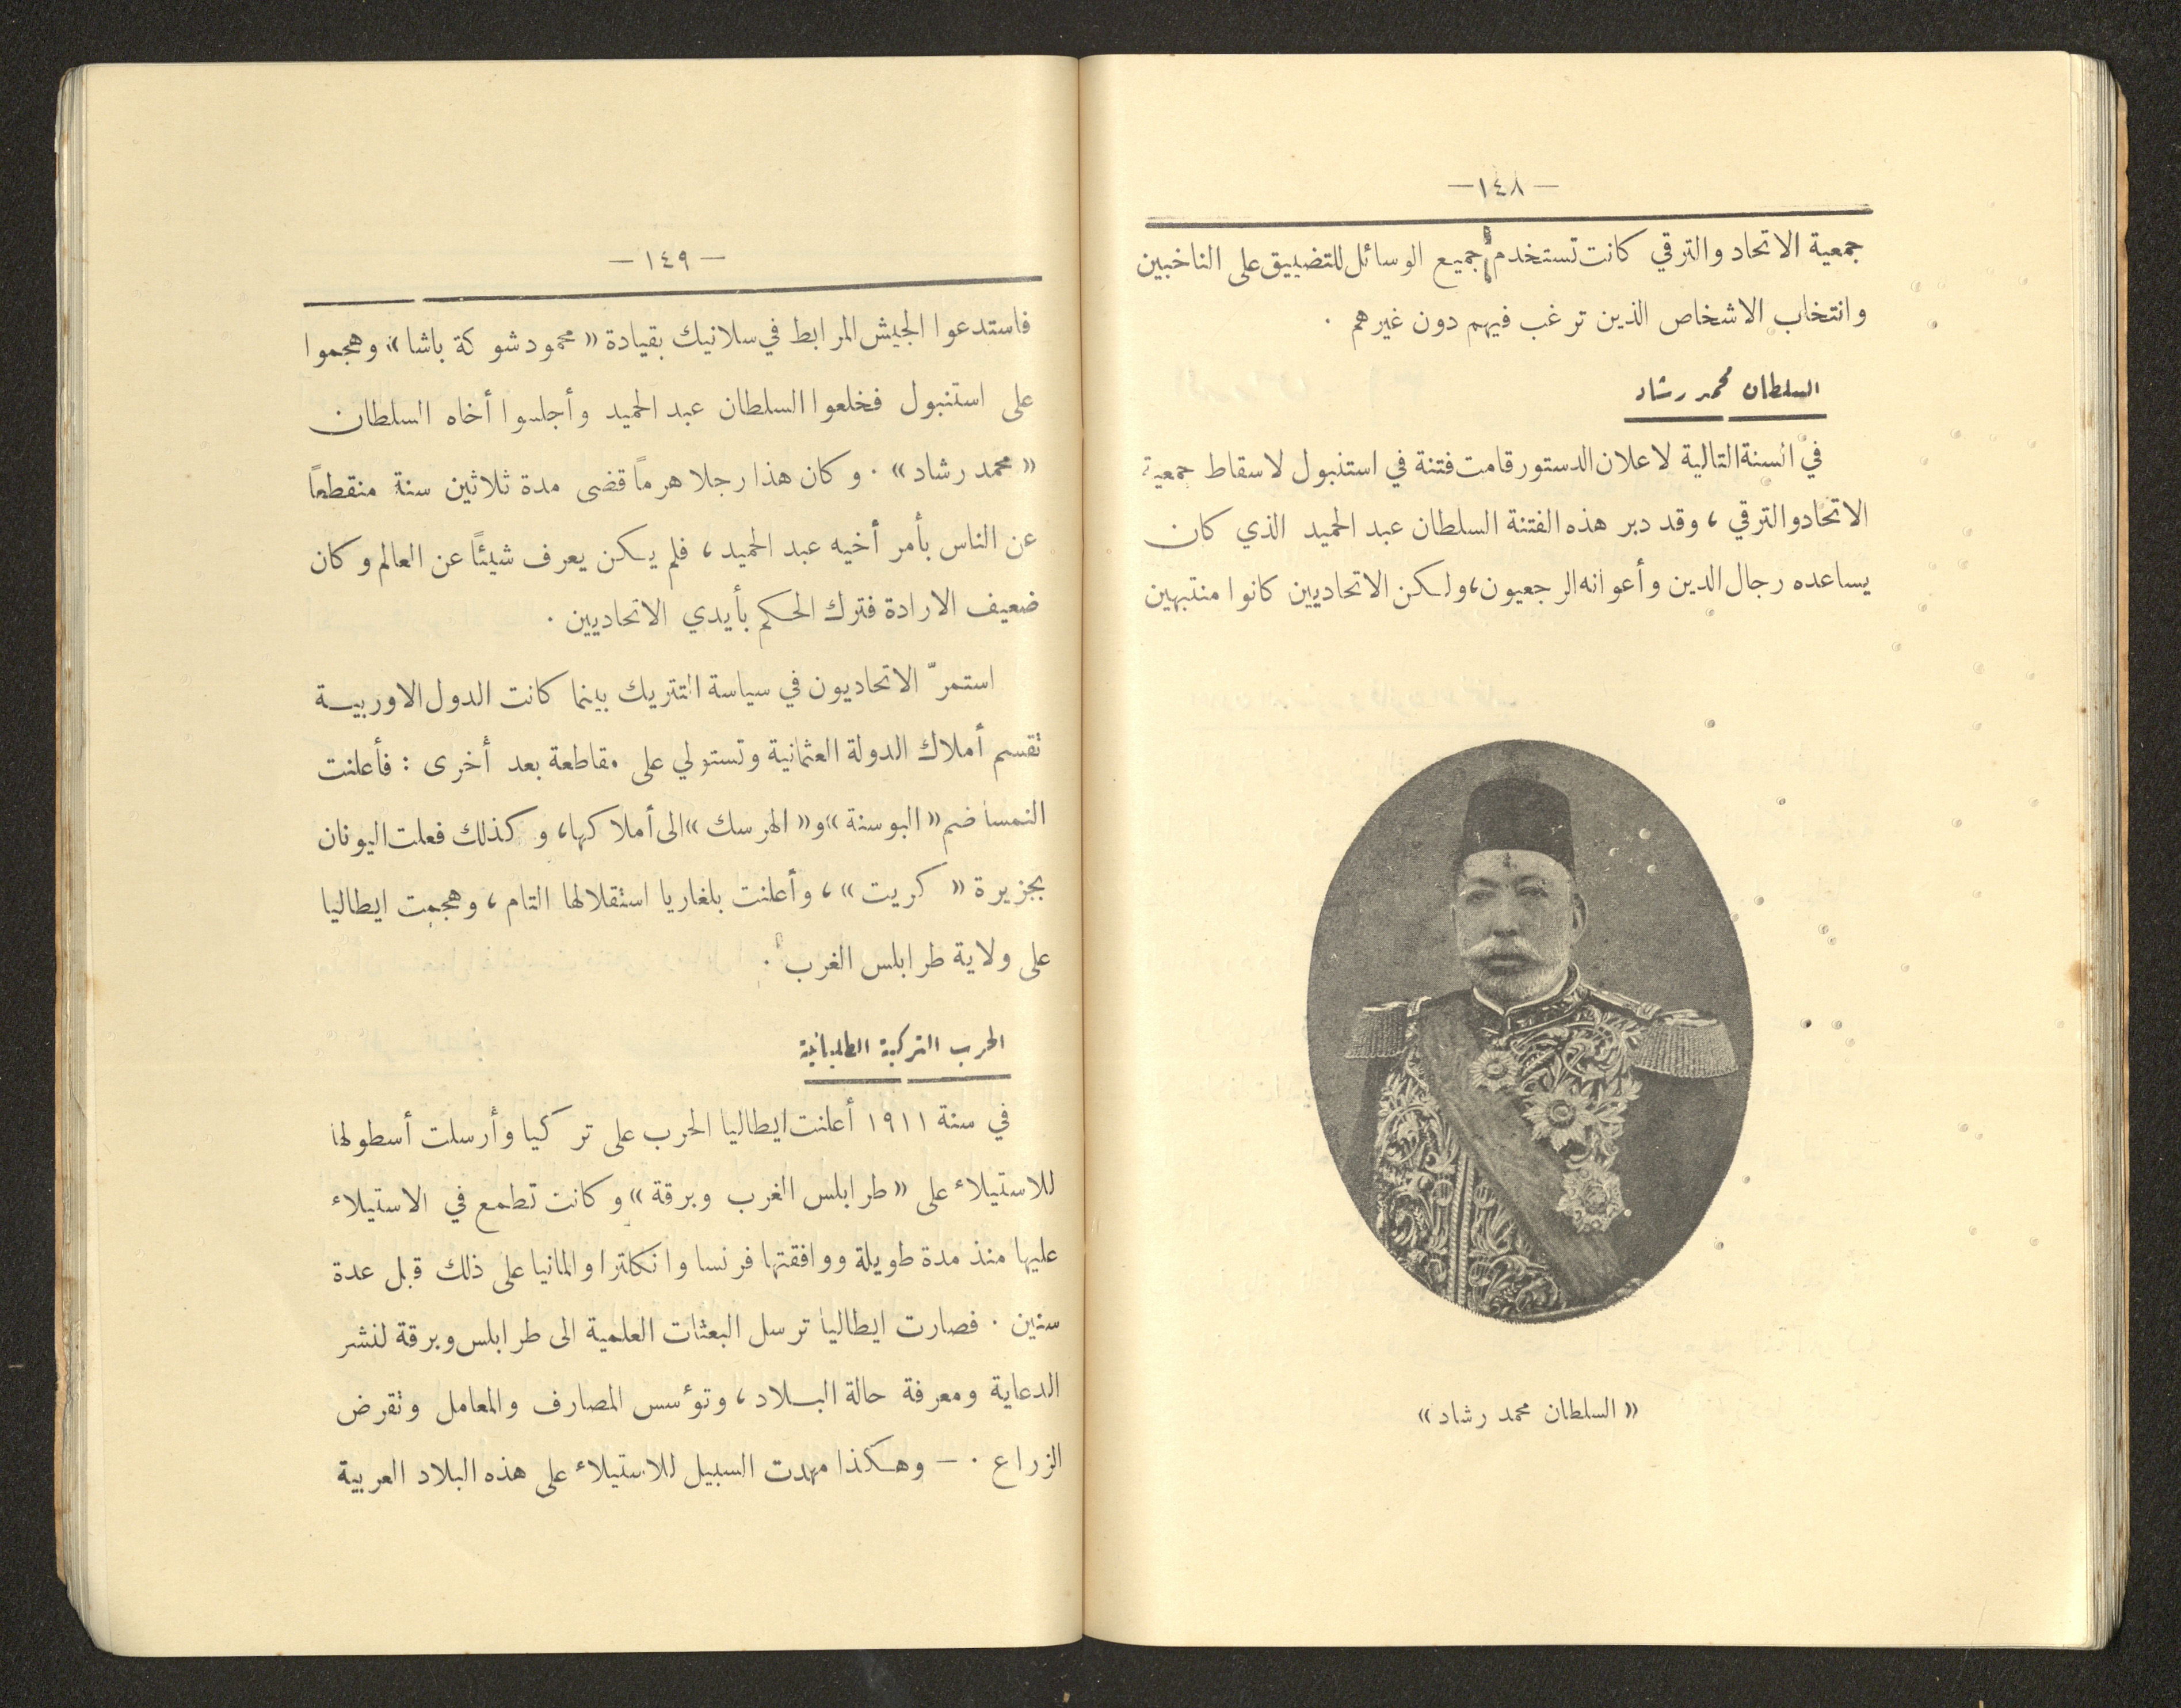 —١٤٨—
جمعية الاتحاد والترقي كانت تستخدم جميع الوسائل للتضييق على الناخبين
وانتخاب الاشخاص الذين ترغب فيهم دون غيرهم .
السلطان محمد رشاد
في السنة التالية لاعلان الدستور قامت فتنة في استنبول لاسقاط جمعية
الاتحاد والترقي ، وقد دبر هذه الفتنة السلطان عبد الحميد الذي كان
يساعده رجال الدين وأعوانه الرجعيون، ولكن الاتحاديين كانوا منتبهين
« السلطان محمد رشاد »
— ١٤٩ —
فاستدعوا الجيش المرابط في سلانيك بقيادة « محمود شوكة باشا » وهجموا
على استنبول فخلعوا السلطان عبد الحميد وأجلسوا أخاه السلطان
« محمد رشاد » . وكان هذا رجلا هرماً قضى مدة ثلاثين سنة منقطعاً
عن الناس بأمر أخيه عبد الحميد ، فلم يكن يعرف شيئاً عن العالم وكان
ضعيف الارادة فترك الحكم بأيدي الاتحاديين .
استمرّ الاتحاديون في سياسة التتريك بينما كانت الدول الاوربية
تقسم أملاك الدولة العثمانية وتستولي على مقاطعة بعد أخرى : فأعلنت
النمسا ضم « البوسنة » و « الهرسك » الى أملاكها، وكذلك فعلت اليونان
بجزيرة « كريت » ، وأعلنت بلغاريا استقلالها التام ، وهجمت ايطاليا
على ولاية طرابلس الغرب .
الحرب التركية الطليانية
في سنة ١٩١١ أعلنت ايطاليا الحرب على تركيا وأرسلت أسطولها
للاستيلاء على « طرابلس الغرب وبرقة » وكانت تطمع في الاستيلاء
عليها منذ مدة طويلة ووافقتها فرنسا وانكلترا والمانيا على ذلك قبل عدة
سنين . فصارت ايطاليا ترسل البعثات العلمية الى طرابلس وبرقة لنشر
الدعاية ومعرفة حالة البلاد ، وتؤسس المصارف والمعامل وتقرض
الزراع . — وهكذا مهدت السبيل للاستيلاء على هذه البلاد العربية